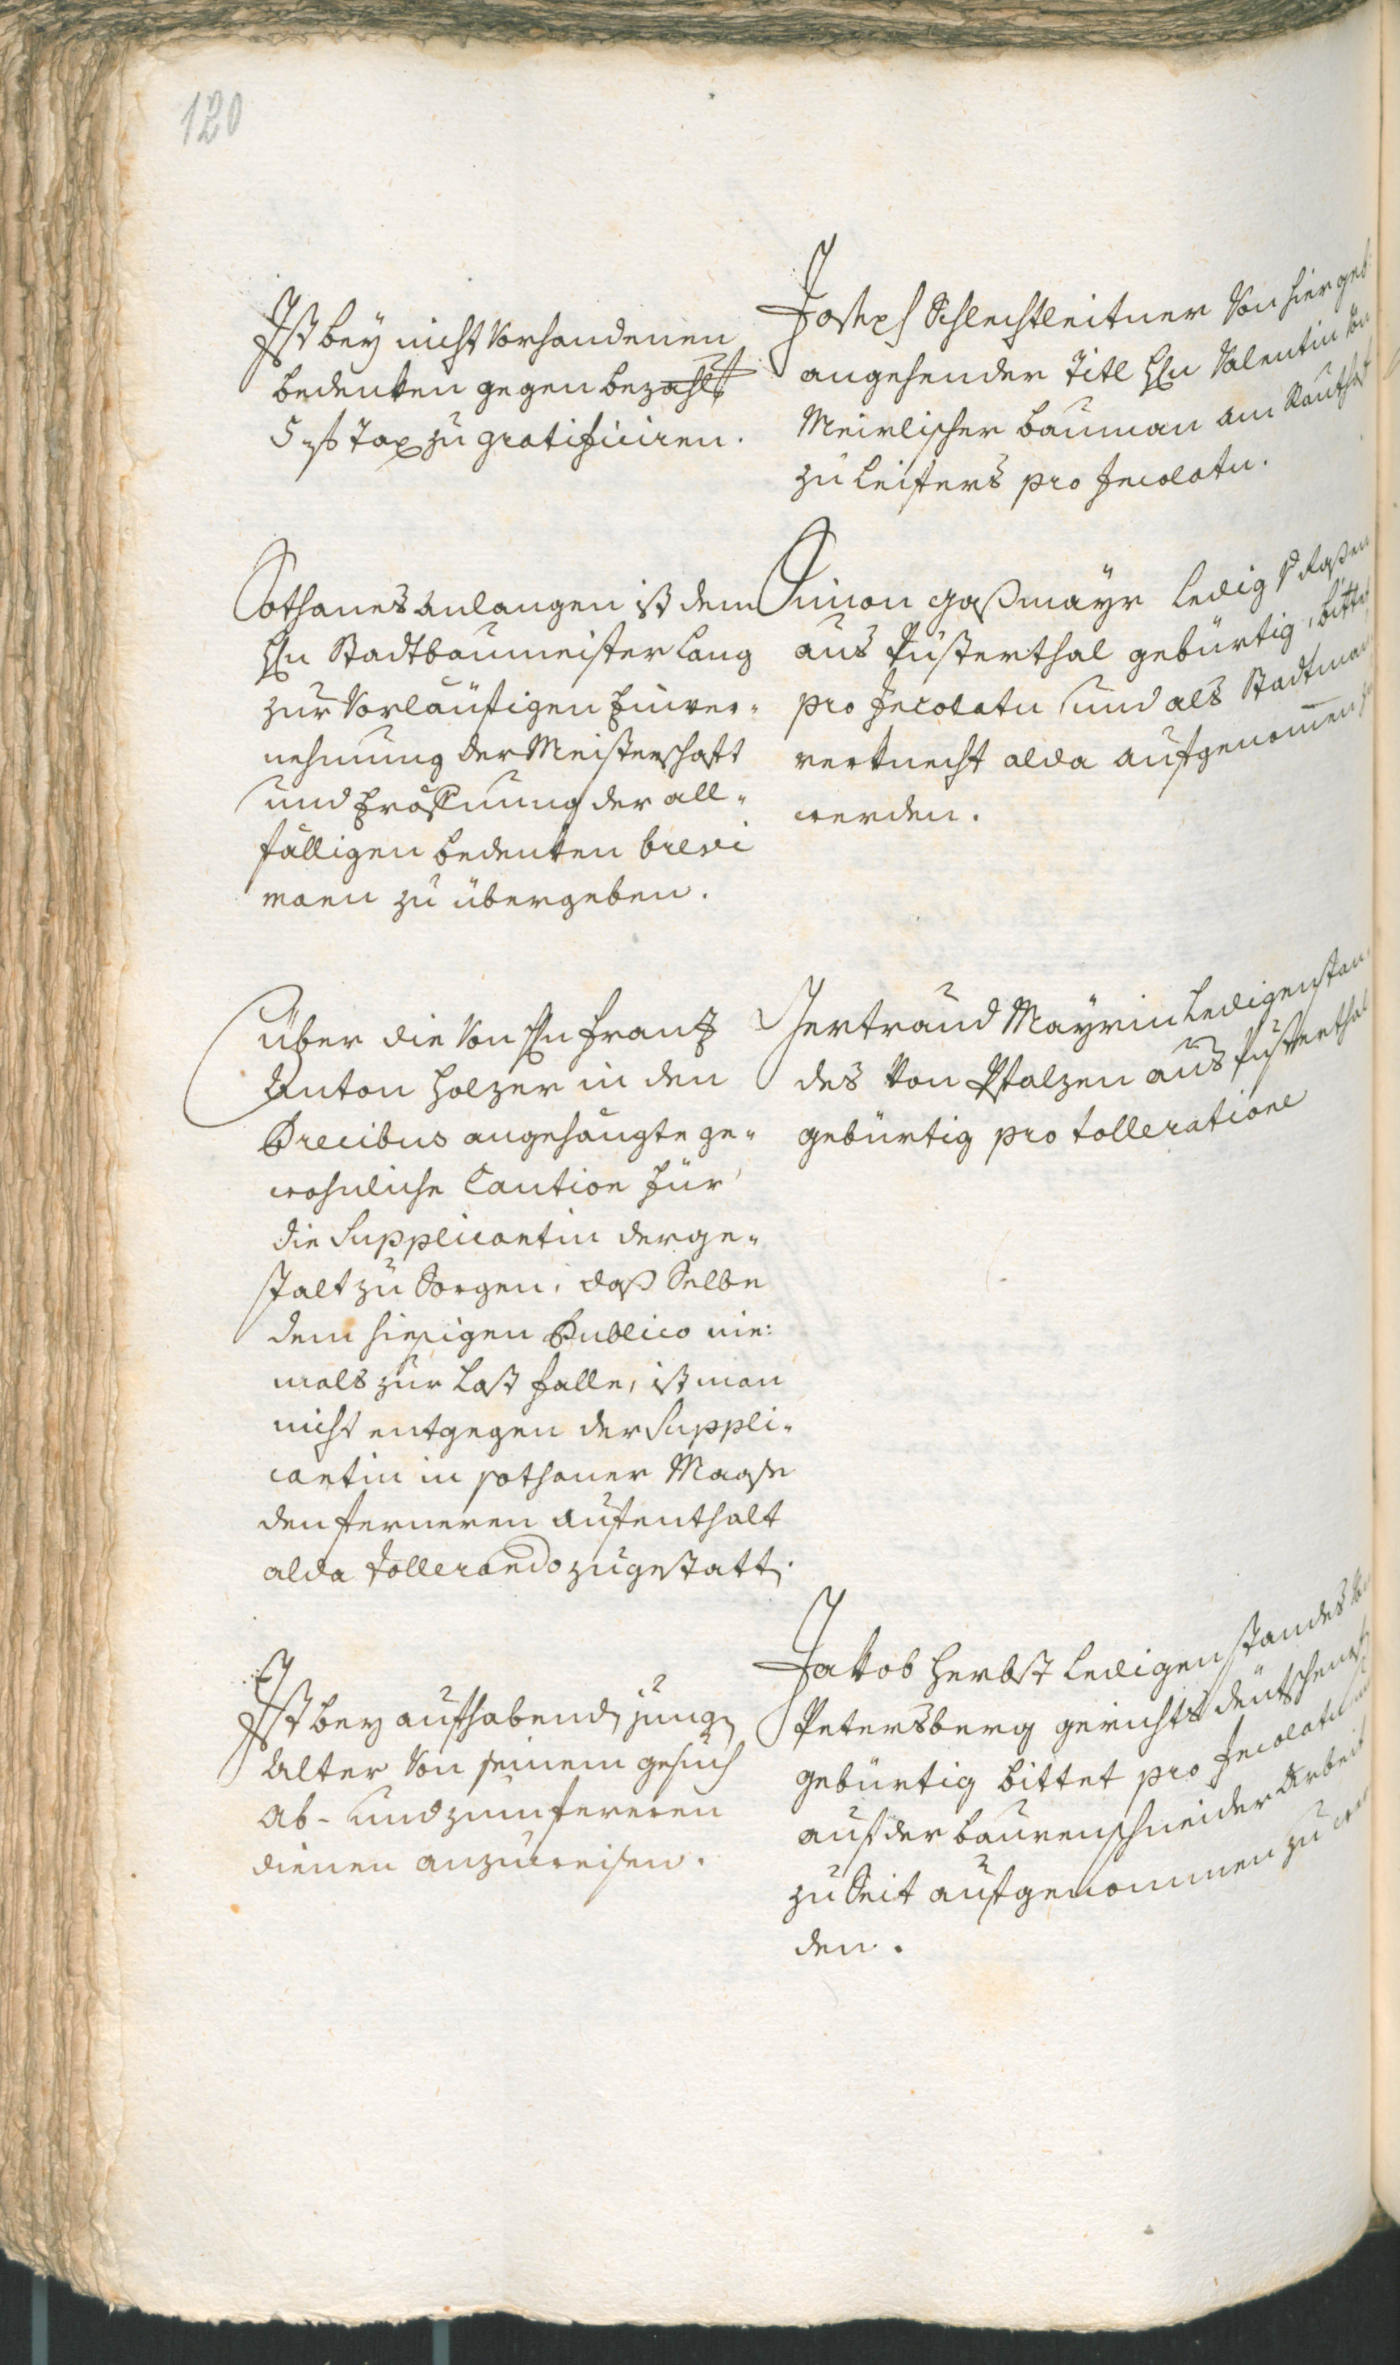 120
Ist bey nicht vorhandenen
bedenken gegen bezahlt
5 f Tax zu gratificiren.
Joseph Schlechtleitner von hier geb:
angehender Titl H[er]n Valentin von
Meirlischer bauman am
zu Leifers pro Incolatu.
Sothanes anlangen ist dem
Hn Stadtbaumeister Lang
zur vorläufigen Einver-
nehmung der Meisterschaft
und Eröffnung der all-
fälligen bedenken brevi
manu zu übergeben.
Simon Gaßmayr ledig v Raßen
aus Pusterthal gebürtig, bittet
pro Incolatu und als Stadtmau
rerknecht alda aufgenommen zu
werden.
über die von Hn Frantz
Anton Holzer in den
Precibus angehängte ge-
wohnliche Caution für
die Supplicantin derge-
stalt zu Sorgen, daß Selbe
dem hiesigen Publico nie:
mals zur Last falle, ist man
nicht entgegen der Suppli-
cantin in sothaner Maaße
den ferneren aufenthalt
alda tollerando zugestatt.
Gertraud Mayrin Ledigenstan
des von Pfalzen aus Pusterthal
gebürtig pro tolleratione
Ist bey aufhabend jung
Alter von seinem gesuch
ab- und zum ferneren
dienen anzuweisen.
Jakob Herbst Ledigenstandes von
Petersberg gerichts deutschenof
gebürtig bittet pro Incolatu und
auf der baurenschneider Arbeit
zu Seit aufgenommen zu wer
den.